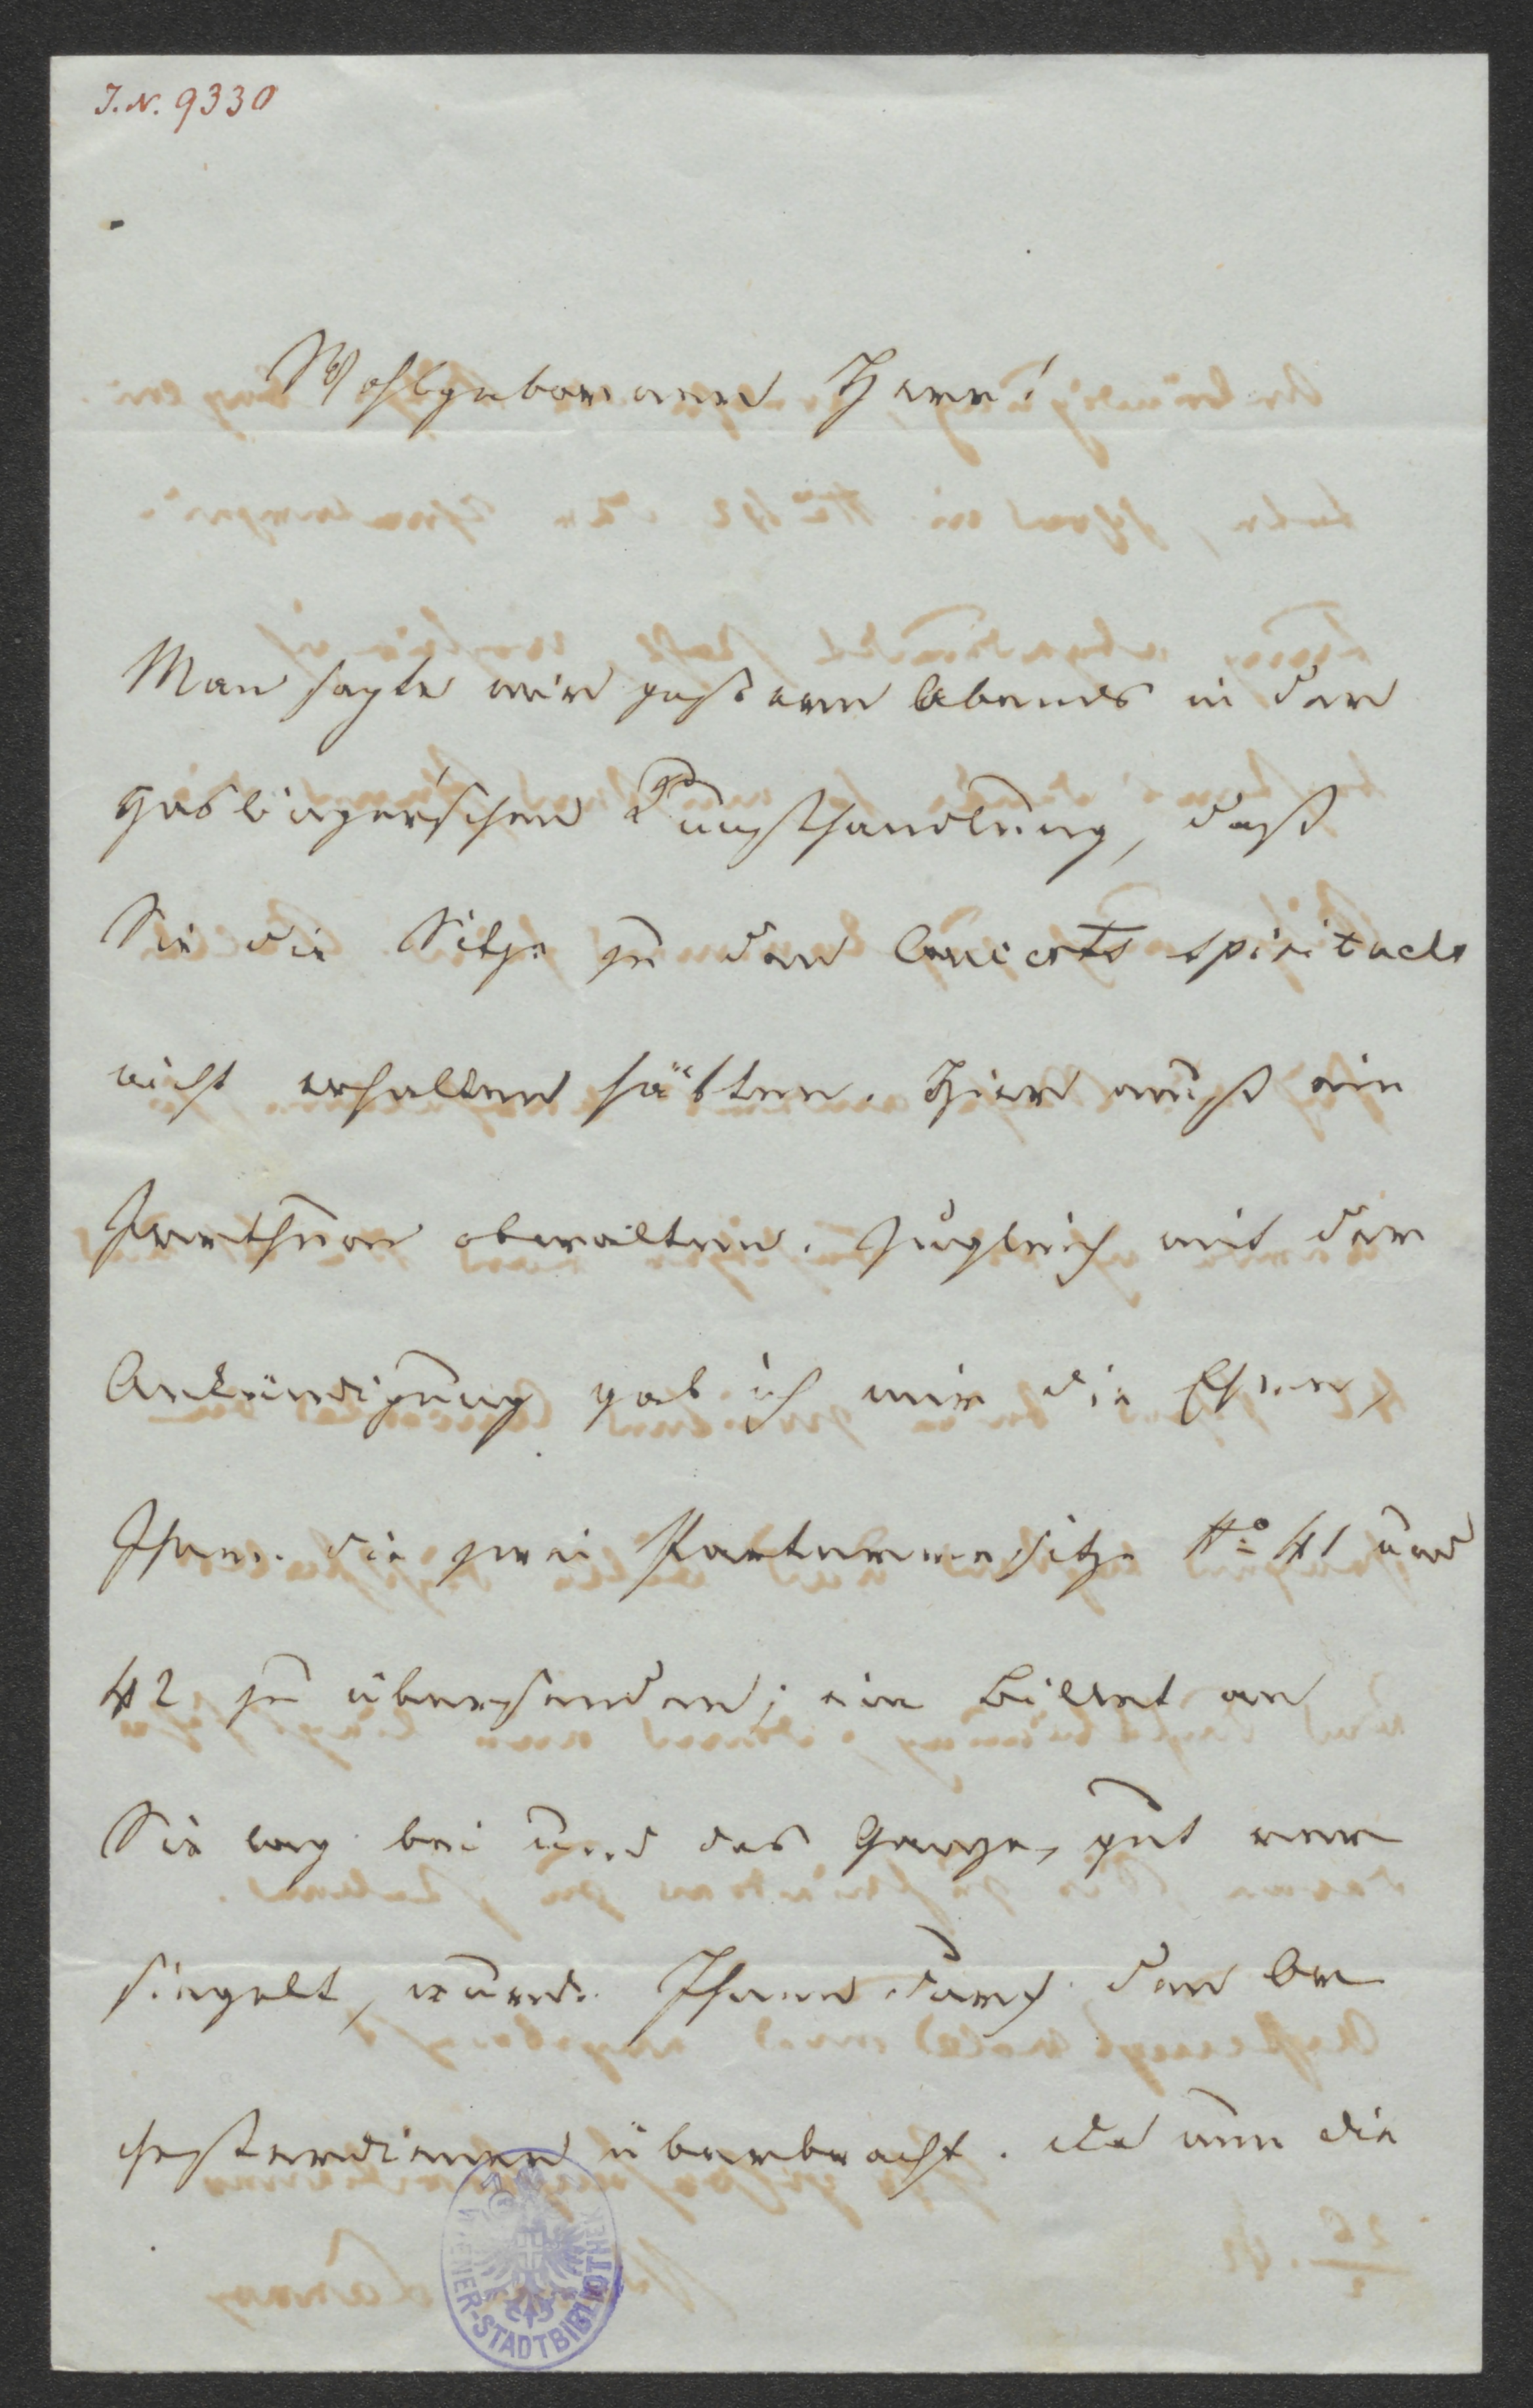 J.N. 9330
Wohlgeborener Herr!
Man sagte mir gestern Abends in der
Haslinger'schen Kunsthandlung, daß
Sie die Sitze zu den Concerts spirituels
nicht erhalten hätten. Hier muß ein
Irrthum obwalten. Zugleich mit der
Ankündigung gab ich mir die Ehre,
Ihnen die zwei Parterresitze No 41 und
42 zu übersenden; ein Billet an
Sie lag bei und das Ganze, gut ver
siegelt, wurde Ihnen durch den Or
chesterdiener überbracht. Da nun die
WIENER-STADTBIBLIOTHEK